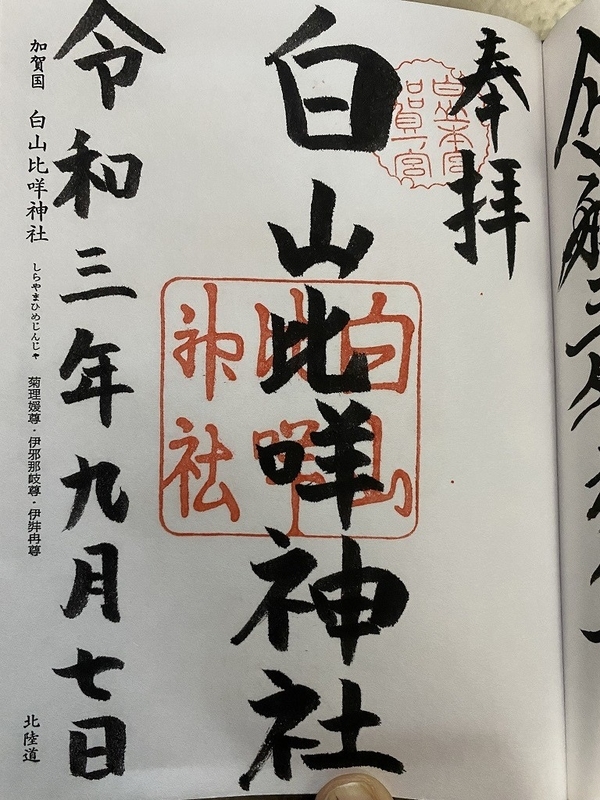 奉拝
白山本宮
加賀一宮
白山比咩神社
白山
比咩
神社
令和三年九月七日
加賀国 白山比咩神社 しらやまひめじんじゃ 菊理媛尊・伊邪那岐尊・伊弉冉尊 北陸道